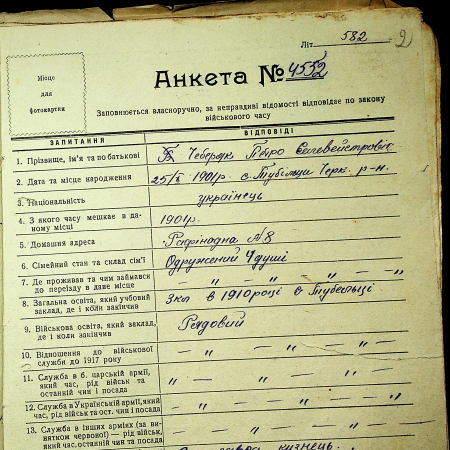 Літ. 582
2
Місце
для
фотокартки
Анкета № 4552
Заповнюється власноручно, за неправдиві відомості відповідає по закону
військового часу
ЗАПИТАННЯ ВІДПОВІДІ
1. Прізвище, ім'я та по батькові Чебердук Петро
2. Дата та місце народження 1901р. с. Тубільці Черк. р-н.
3. Національність українець
4. З якого часу мешкає в даному місці 1901р.
5. Домашня адреса Рафінадна № 8
6. Сімейний стан та склад сім'ї Одружений 4 душі
7. Де проживав та чим займався
до переїзду в дане місце — " — " —
8. Загальна освіта, який учбовий
заклад, де і коли закінчив 3кл в 1910 році с Тубельці
9. Військова освіта, який заклад,
де і коли закінчив Рядовий
10. Відношення до військової
служби до 1917 року — " — " — " —
11. Служба в б. царській армії,
який час, рід військ та
останній чин і посада " — " — " — " —
12. Служба в Українській армії, який
час, рід військ та ост. чин і посада — " — " — " —
13. Служба в інших арміях (за ви-
нятком червоної) — рід військ,
який час, останній чин та посада — " — " — " —
кузнець.